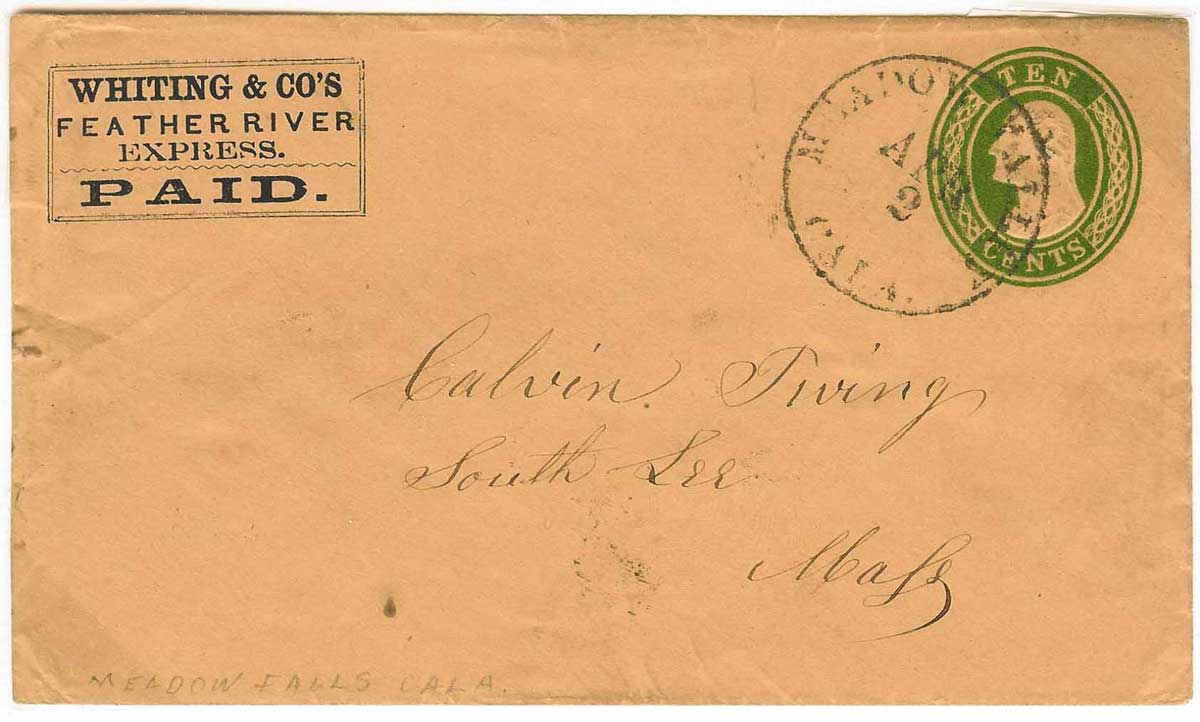 WHITING & CO'S
FEATHER RIVER
EXPRESS.
PAID.
MEADOW
TEN
CENTS
Calvin Twing
South Lee
Maſs
MEADOW FALLS CALA.